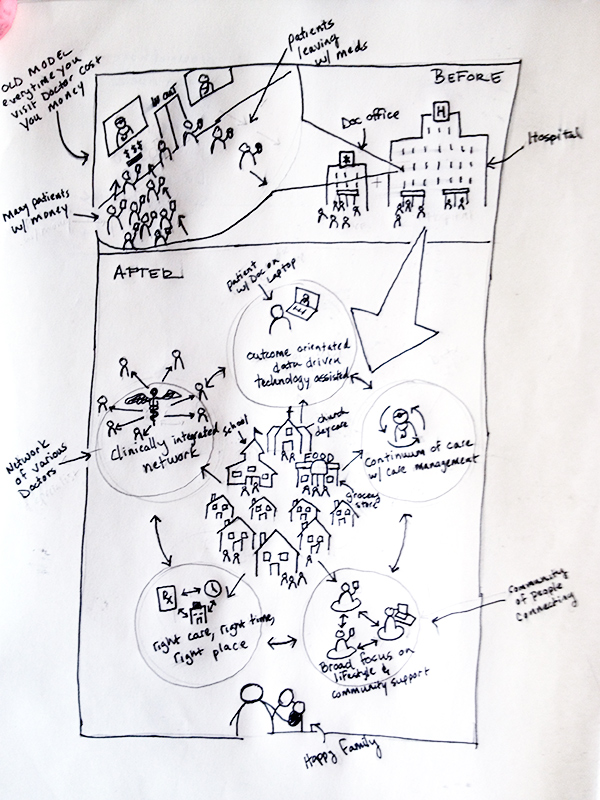 OLD MODEL
everytime you
visit Doctor cost
you money
patients
leaving
w/ meds
BEFORE
IN
OUT
$$$
Doc office
H
Hospital
Many patients
w/ money
AFTER
patient
w/ Doc on
Laptop
outcome orientated
data driven
technology assisted
Clinically integrated
network
Network
of various
Doctors
school
church
daycare
FOOD
grocery
store
Continuum of care
w/ care management
Rx
right care, right time,
right place
Broad focus on
lifestyle &
community support
community
of people
connecting
Happy Family